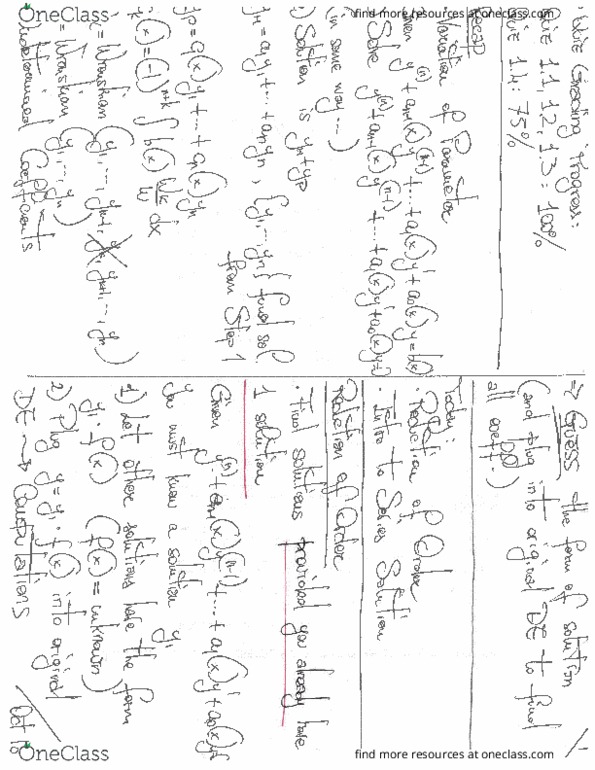 OneClass
find more resources at oneclass.com
Quiz Grading Progress:
Quiz 1.1, 1.2, 1.3 : 100%
Quiz 1.4 : 75%
Recap
Variation of Parameter
Given y^(n) + a_{n-1}(x) y^(n-1) + ... + a_1(x) y' + a_0(x) y = b(x)
Solve y^(n) + a_{n-1}(x) y^(n-1) + ... + a_1(x) y' + a_0(x) y =
(in some way ...)
Solution is y_H + y_P
y_H = a_1 y_1 + ... + a_n y_n , {y_1, ..., y_n} fund sol
from Step 1
y_P = c_1(x) y_1 + ... + c_n(x) y_n
(x) = (-1)^{n+k} ∫ b(x) W_k/W dx
= Wronskian (y_1, ..., y_{k-1}, y_k, y_{k+1}, ..., y_n)
= Wronskian (y_1, ..., y_n)
Undetermined Coefficients
⇒ GUESS the form of solution
(and plug into original DE to find
all coeff.)
Today:
· Reduction of Order
· Intro to Series Solution
Reduction of Order
· Find solutions provided you already have
1 solution
Given y^(n) + a_{n-1}(x) y^(n-1) + ... + a_1(x) y' + a_0(x) y =
You must know a solution y_1
1) Let other solutions have the form
y_1 · f(x) (f(x) = unknown)
2) Plug y = y_1 · f(x) into original
DE → Computations
Oct 10
OneClass
find more resources at oneclass.com